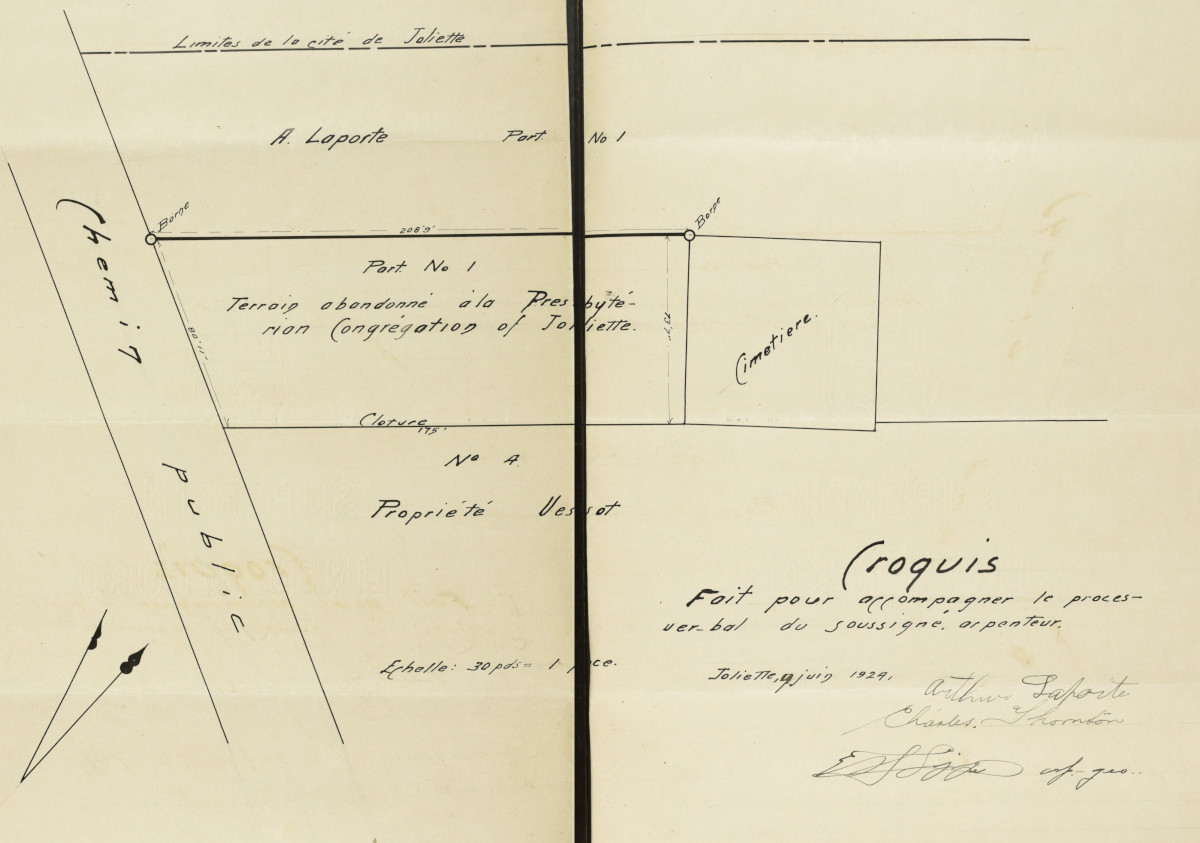 Limites de la cité de Joliette
A. Laporte Part. No 1
Borne
Borne
208'9"
Part. No 1
Terrain abandonné à la Presbyté-
rian Congrégation of Joliette.
80'.11"
73'9"
Cimetiere.
Chemin public
Cloture
175'
No 4.
Propriété Vessot
Croquis
Fait pour accompagner le proces-
ver-bal du soussigné, arpenteur.
Echelle: 30 pds = 1 pce.
Joliette, 9 juin 1924,
Arthur Laporte
Charles. Thornton
arp-geo..